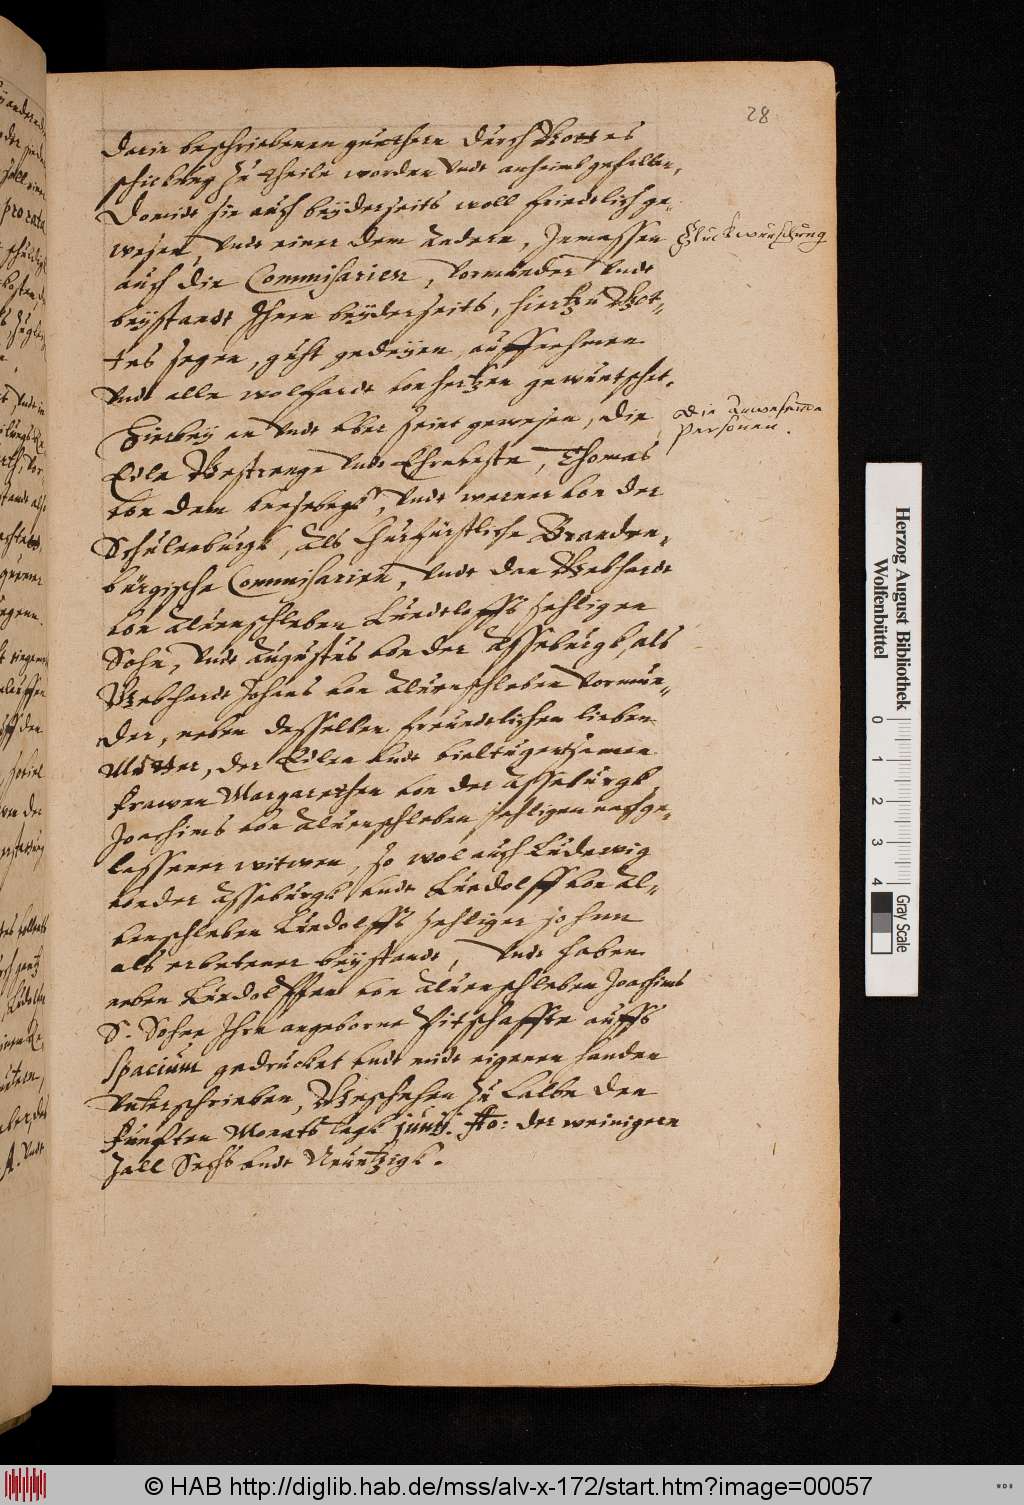 28
darin beschriebenen guethern durch Gottes
schickung zu theile worden undt anheimb gefallen,
Domidt sie auch beÿderseits woll friedtlich ge-
wesen, undt einer dem andern, Inmassen
Glückwünschung
auch die Commissarien, Vormünder undt
beÿstandt Ihnen beÿderseits, hiertzu Got-
tes segen, guht gedeÿen, auffnehmen
undt alle wolfardt von hertzen gewüntschet.
Hierbeÿ an undt über seint gewesen, die
Die Anwesende
Personen.
Edle Gestrenge undt Ehrnveste, Thomas
von dem Knesebegk, undt werner von der
Schulenburgk, Als Churfürstliche Branden-
burgische Commissarien, undt dan Gebhardt
von Aluenschleben Lüedeloffs sehligen
Sohn, undt Augustus von der Asseburgk, als
Gebhardt Johans von Aluenschleben Vormün-
der, neben desselben freundtlichen lieben
Mutter, der Edlen undt vieltugentsamen
frawen Margarethen von der Asseburgk
Joachims von Aluenschleben sehligen nachge-
lassener witwen, so wol auch Ludewig
von der Asseburgk undt Lüedolff von Al-
venschleben Lüedolffs sehliger sohnn
als erbetener beÿstandt, undt haben
neben Lüedolffen von Aluenschleben Joachims
S. Sohne Ihre angeborne Pitschafften auffs
Spacium gedrucket undt midt eigenen handen
unterschrieben, Geschehen zu Calbe den
fünften Monats tagk junÿ. Ao: der weinigern
Zall Sechs undt Neuntzigk.
Herzog August Bibliothek
Wolfenbüttel
0 1 2 3 4
Gray Scale
© HAB http://diglib.hab.de/mss/alv-x-172/start.htm?image=00057